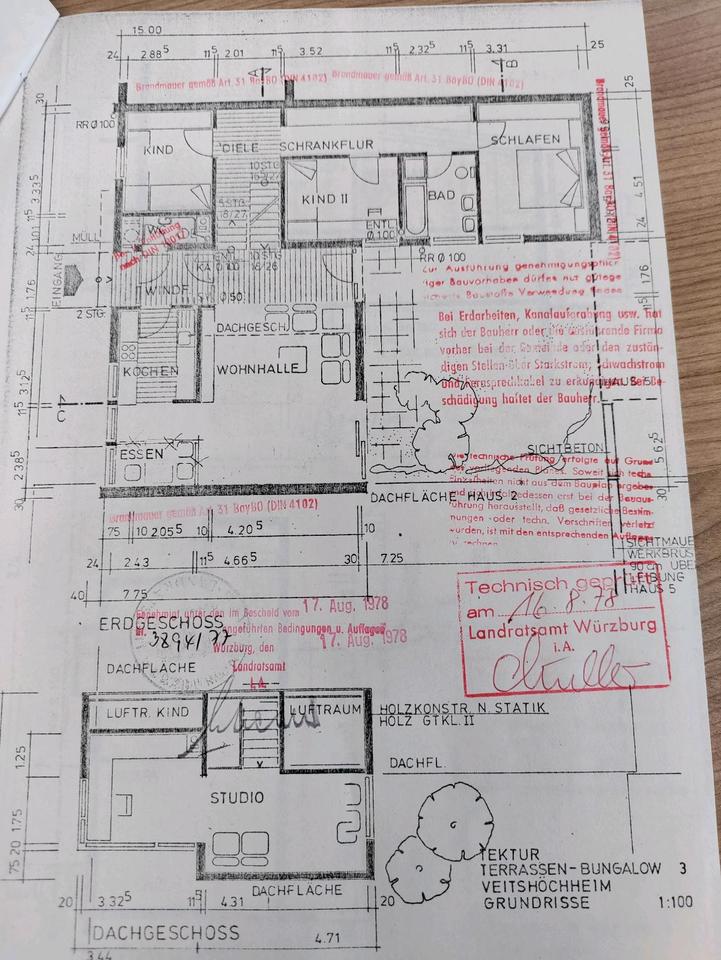 15.00
24 2.88⁵ 11⁵ 2.01 11⁵ 3.52 11⁵ 2.32⁵ 11⁵ 3.31 25
A B
Brandmauer gemäß Art. 31 BayBO (DIN 4102) Brandmauer gemäß Art. 31 BayBO (DIN 4102)
30
25
RR Ø 100
KIND
DIELE SCHRANKFLUR
SCHLAFEN
10 STG
KIND II
BAD
5 STG.
18/27
ENTL.
Ø 100
3.33⁵
4.51
11⁵
1.01
24
24
WC
MÜLL
EINGANG
1.76
11⁵
2 STG.
KA Ø 100
10 STG
16/26
RR Ø 100
WINDF.
Ø 50
1.76
Zur Ausführung genehmigungspflich-
tiger Bauvorhaben dürfen nur
Baustoffe Verwendung finden
DACHGESCH.
KOCHEN
WOHNHALLE
3.12⁵
11⁵
C
Bei Erdarbeiten, Kanalaufgrabung usw. hat
sich der Bauherr oder die ausführende Firma
vorher bei der Gemeinde oder den zustän-
digen Stellen über Starkstrom, Schwachstrom
und Fernsprechkabel zu erkundigen. Bei Be-
schädigung haftet der Bauherr.
HAUS 5
ESSEN
2.38⁵
30
SICHTBETON
5.62⁵
30
Eine technische Prüfung erfolgte auf Grund
des vorliegenden Planes. Soweit sich techn.
Einzelheiten nicht aus dem Bauplan ergeben
und infolgedessen erst bei der Bauaus-
führung herausstellt, daß gesetzliche Bestim-
mungen oder techn. Vorschriften verletzt
wurden, ist mit den entsprechenden Auflagen
zu rechnen.
DACHFLÄCHE HAUS 2
Brandmauer gemäß Art. 31 BayBO (DIN 4102)
75 10 2.05⁵ 10 4.20⁵ 10
24 2.43 11⁵ 4.66⁵ 30 7.25
40 7.75
SICHTMAUE
WERKBRUS
90 cm ÜBE
LEIBUNG
HAUS 5
ERDGESCHOSS
Genehmigt unter den im Bescheid vom 17. Aug. 1978
Nr. 3894/77 angeführten Bedingungen u. Auflagen
Würzburg, den 17. Aug. 1978
Landratsamt
I.A.
Technisch geprüft
am 16.8.78
Landratsamt Würzburg
i.A.
DACHFLÄCHE
LUFTR. KIND
LUFTRAUM
HOLZKONSTR. N. STATIK
HOLZ GTKL. II
DACHFL.
1.25
1.75
20
75
STUDIO
DACHFLÄCHE
20 3.32⁵ 11⁵ 4.31 20
DACHGESCHOSS
4.71
3.44
TEKTUR
TERRASSEN-BUNGALOW 3
VEITSHÖCHHEIM
GRUNDRISSE 1:100